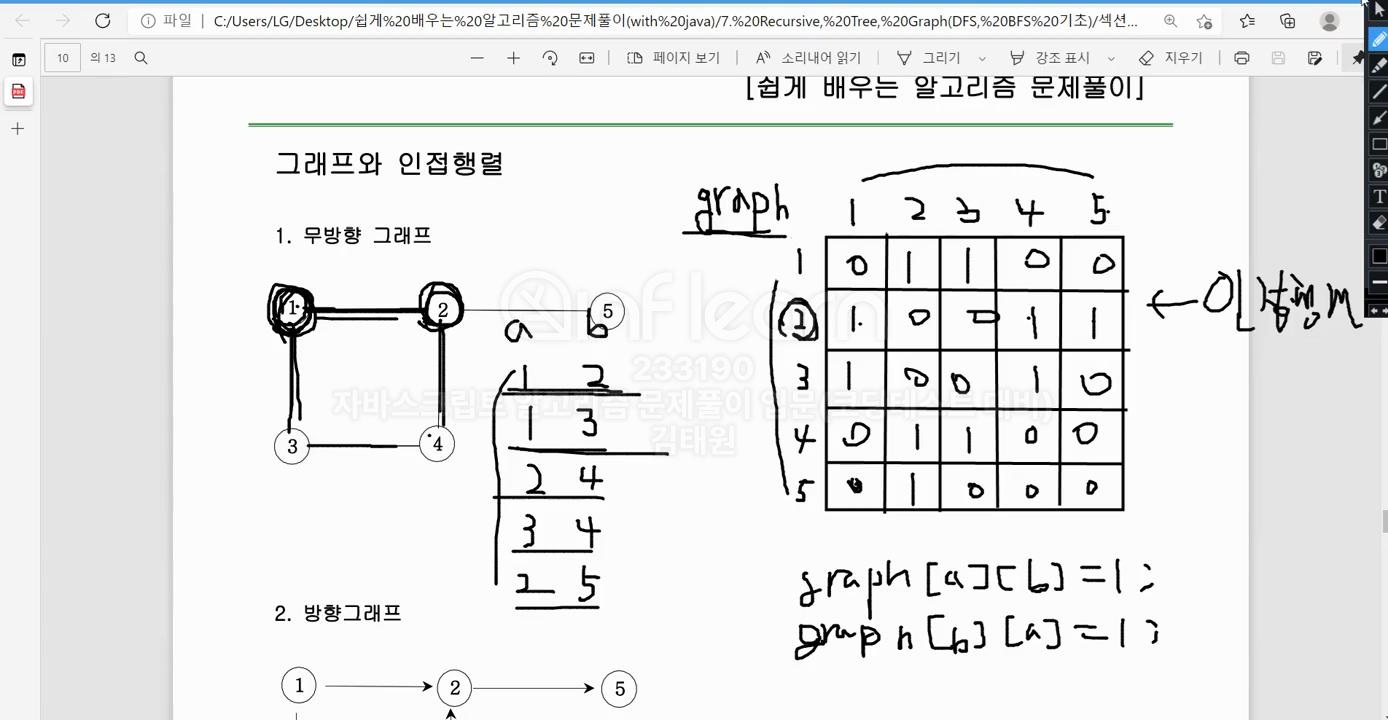 파일 C:/Users/LG/Desktop/쉽게%20배우는%20알고리즘%20문제풀이(with%20java)/7.%20Recursive,%20Tree,%20Graph(DFS,%20BFS%20기초)/섹션...
10 의 13 페이지 보기 소리내어 읽기 그리기 강조 표시 지우기
[쉽게 배우는 알고리즘 문제풀이]
그래프와 인접행렬
1. 무방향 그래프
1 2 5
3 4
a b
1 2
1 3
2 4
3 4
2 5
graph
1 2 3 4 5
1 0 1 1 0 0
2 1 0 0 1 1
3 1 0 0 1 0
4 0 1 1 0 0
5 0 1 0 0 0
graph[a][b]=1;
graph[b][a]=1;
inflearn
233190
자바스크립트 알고리즘 문제풀이 입문(코딩테스트 대비)
김태원
2. 방향그래프
1 2 5